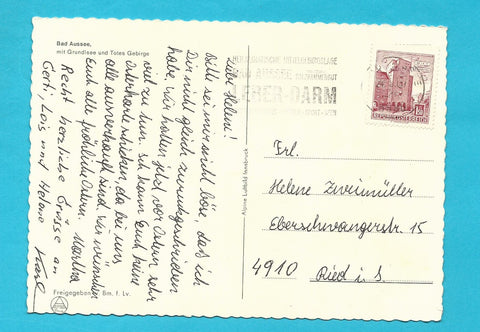 Bad Aussee,
mit Grundlsee und Totes Gebirge
Liebe Heleni!
Bitte sei mir nicht böse, daß ich
Dir nicht gleich zurückgeschrieben
habe, wir hatten jetzt vor Ostern sehr
viel zu tun. Ich kann Euch keine
Osterkarte schicken, da bei uns
alle ausverkauft sind. Wir wünschen
Euch alle fröhliche Ostern. Martha
Recht herzliche Grüsse an
Gerti, Lois und Helene
Karl
Freigegeben v. Bm. f. Lv.
BAD AUSSEE
SALZKAMMERGUT
LEBER-DARM
REPUBLIK ÖSTERREICH
Frl.
Helene Zweimüller
Eberschwangerstr. 15
4910 Ried i. I.